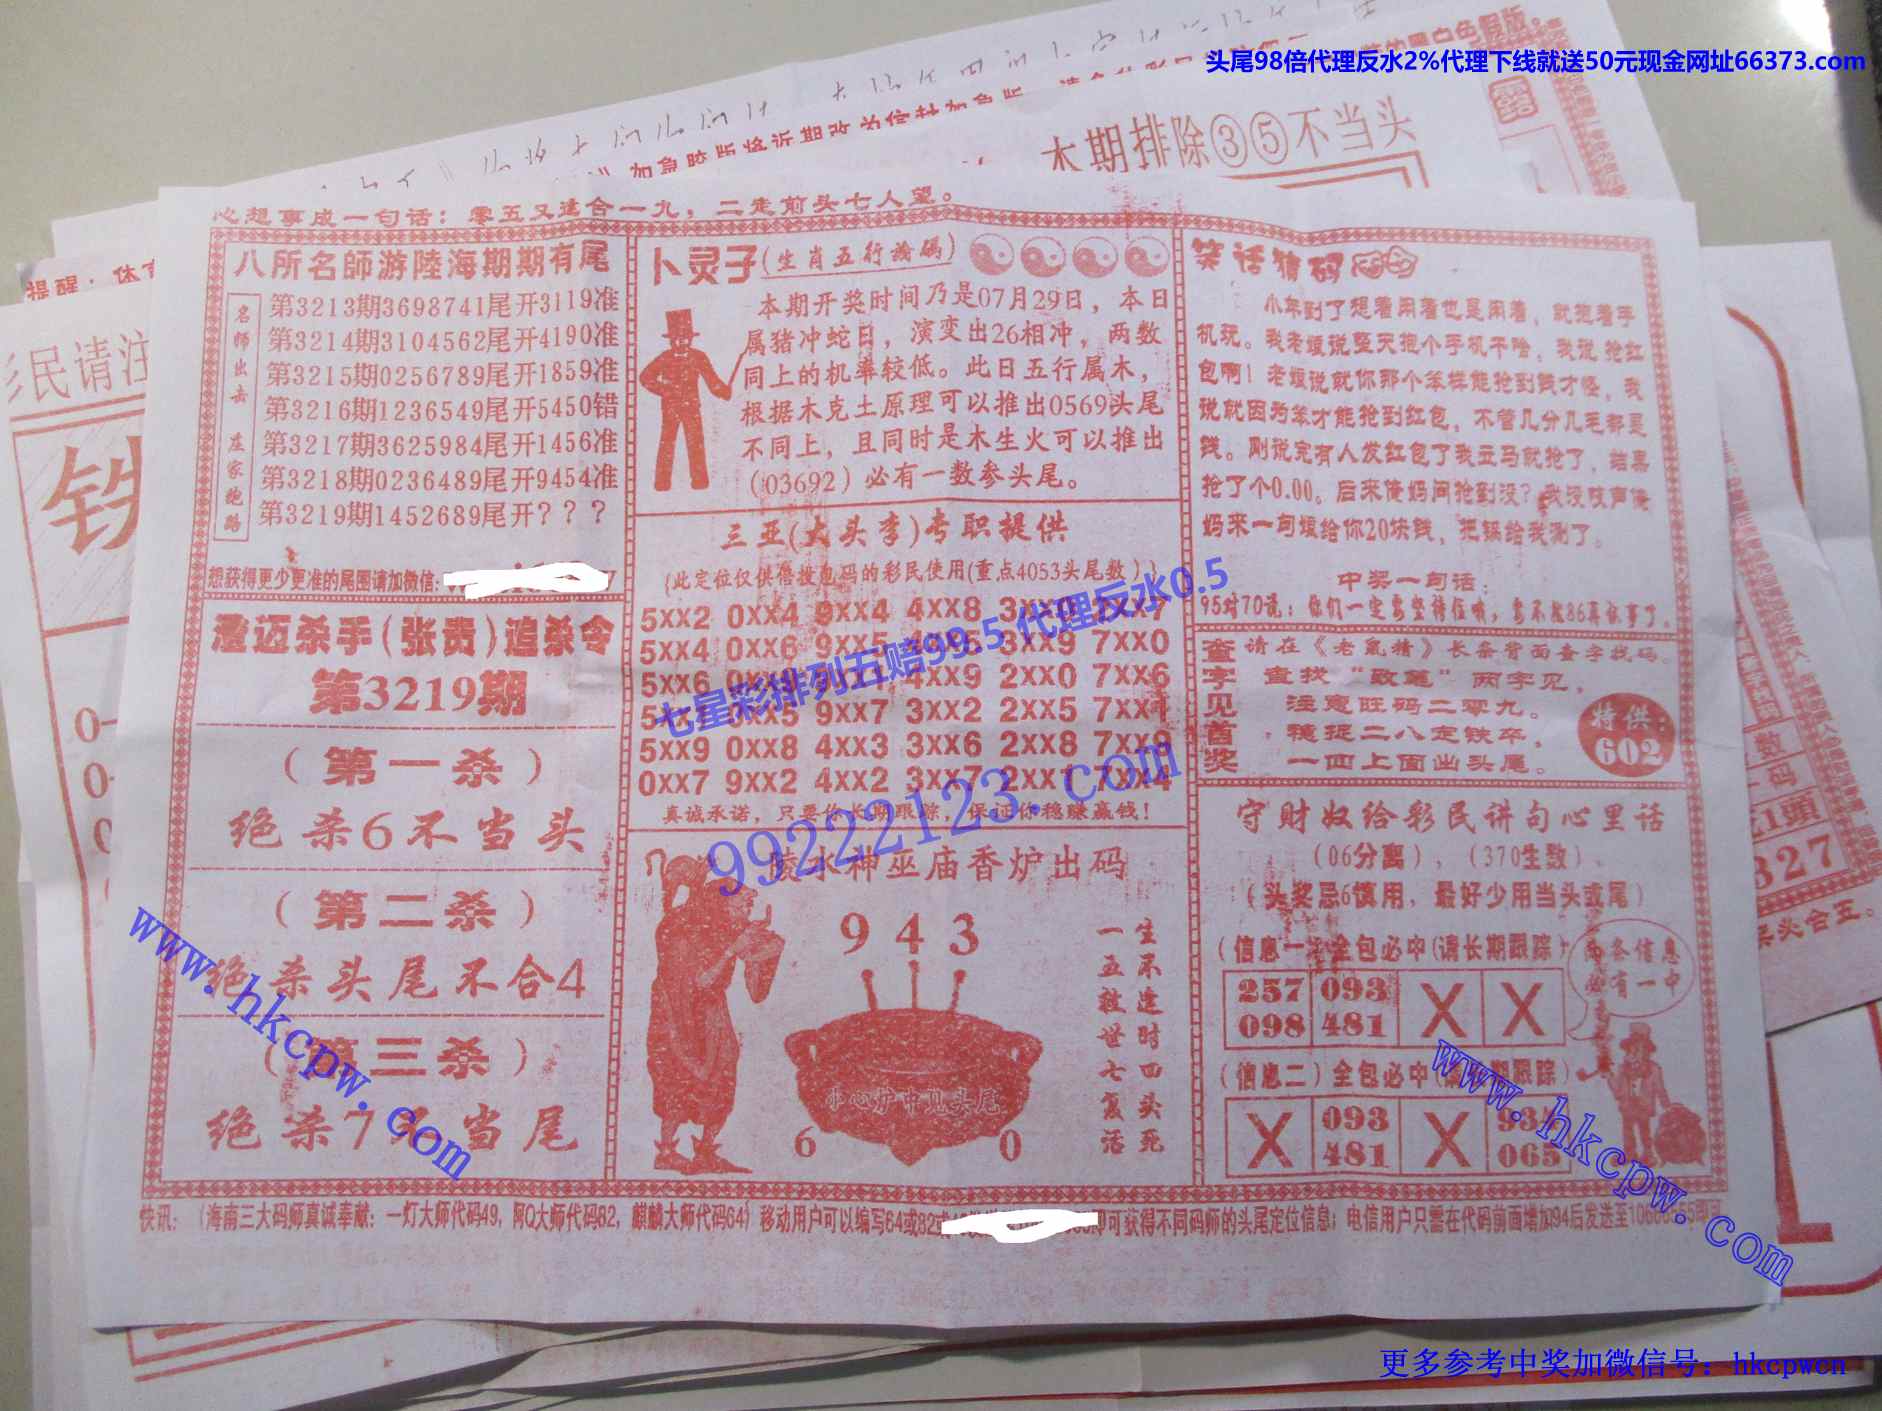 头尾98倍代理反水2%代理下线就送50元现金网址66373.com
本期排除③⑤不当头
心想事成一句话：零五又适合一九，二走前头七人望。
八所名師游陸海期期有尾
名师出击 庄家跑路
第3213期3698741尾开3119准
第3214期3104562尾开4190准
第3215期0256789尾开1859准
第3216期1236549尾开5450错
第3217期3625984尾开1456准
第3218期0236489尾开9454准
第3219期1452689尾开？？？
想获得更少更准的尾图请加微信：
澄迈杀手(张贵)追杀令
第3219期
（第一杀）
绝杀6不当头
（第二杀）
绝杀头尾不合4
（第三杀）
绝杀7不当尾
卜灵子(生肖五行论码)
本期开奖时间乃是07月29日，本日
属猪冲蛇日，演变出26相冲，两数
同上的机率较低。此日五行属木，
根据木克土原理可以推出0569头尾
不同上，且同时是木生火可以推出
(03692）必有一数参头尾。
三亚(大头李)专职提供
(此定位仅供倍投包码的彩民使用(重点4053头尾数))
5XX2 0XX4 9XX4 4XX8 3XX0 2XX7
5XX4 0XX6 9XX5 3XX9 7XX0
5XX6 4XX9 2XX0 7XX6
9XX7 3XX2 2XX5 7XX1
5XX9 0XX8 4XX3 3XX6 2XX8 7XX8
0XX7 9XX2 4XX2 3XX7 2XX1 7XX4
真诚承诺，只要你长期跟踪，保证你稳赚赢钱！
七星彩排列五赔99.5 代理反水0.5
99222123.com
陵水神巫庙香炉出码
9 4 3
一五救世七复活
生不逢时四头死
小心炉中见头尾
6 0
笑话猜码
小年到了想着闲着也是闲着，就抱着手
机玩。我老娘说整天抱个手机干啥，我说抢红
包啊！老娘说就你那个笨样能抢到钱才怪，我
说就因为笨才能抢到红包，不管几分几毛都是
钱。刚说完有人发红包了我立马就抢了，结果
抢了个0.00。后来俺妈问抢到没？我没吱声俺
妈来一句娘给你20块钱，把锅给我涮了。
中奖一句话：
95对70说：你们一定要坚持住哦，
查字见首奖
请在《老鼠精》长条背面查字找码。
查找“致笔”两字见，
注意旺码二零九。
稳捉二八走铁卒，
一四上面出头尾。
特供：
602
守财奴给彩民讲句心里话
（06分离），（370生数）
（头奖忌6慎用，最好少用当头或尾）
(信息一)全包必中(请长期跟踪)
257 093 X X
098 481
两条信息
必有一中
(信息二)全包必中(请长期跟踪)
X 093 X 934
481 065
快讯：（海南三大码师真诚奉献：一灯大师代码49，阿Q大师代码82，麒麟大师代码64）移动用户可以编写64或82或 即可获得不同码师的头尾定位信息；电信用户只需在代码前面增加94后发送至
www.hkcpw.com
www.hkcpw.com
彩民请注
铁
827
更多参考中奖加微信号：hkcpwcn